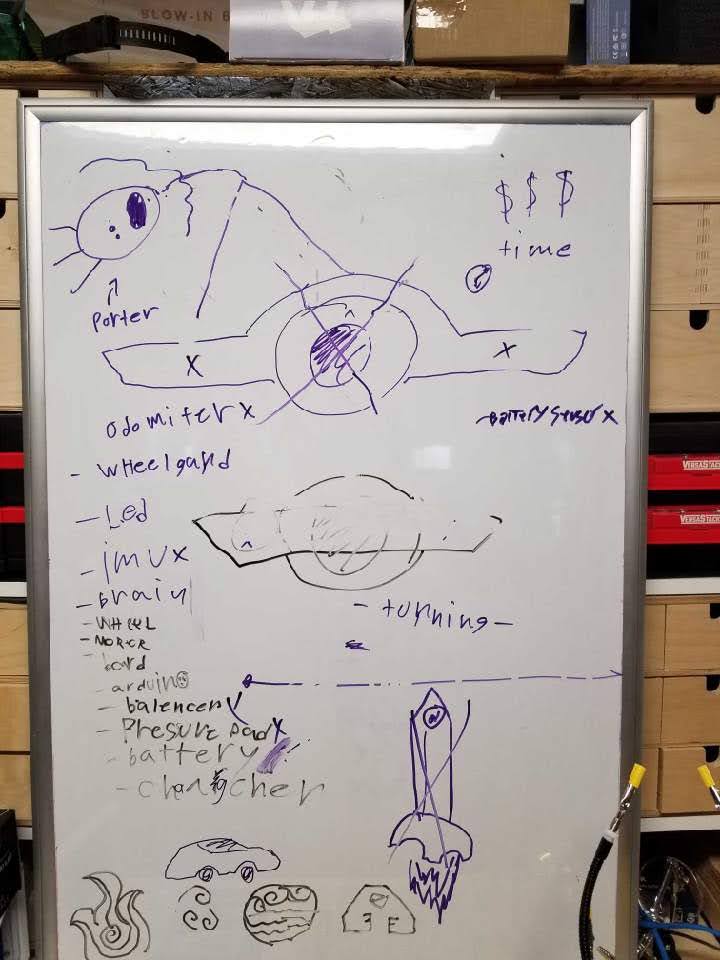 SLOW-IN 6
$ $ $
time
Porter
X
X
odomiter x
Battery senser x
- wheelgard
- Led
- imu x
- brain
- turning -
- WHEEL
- MOTER
- bord
- arduino
- balencer
- Presure pad X
- battery
VERSASTACK
VERSASTACK